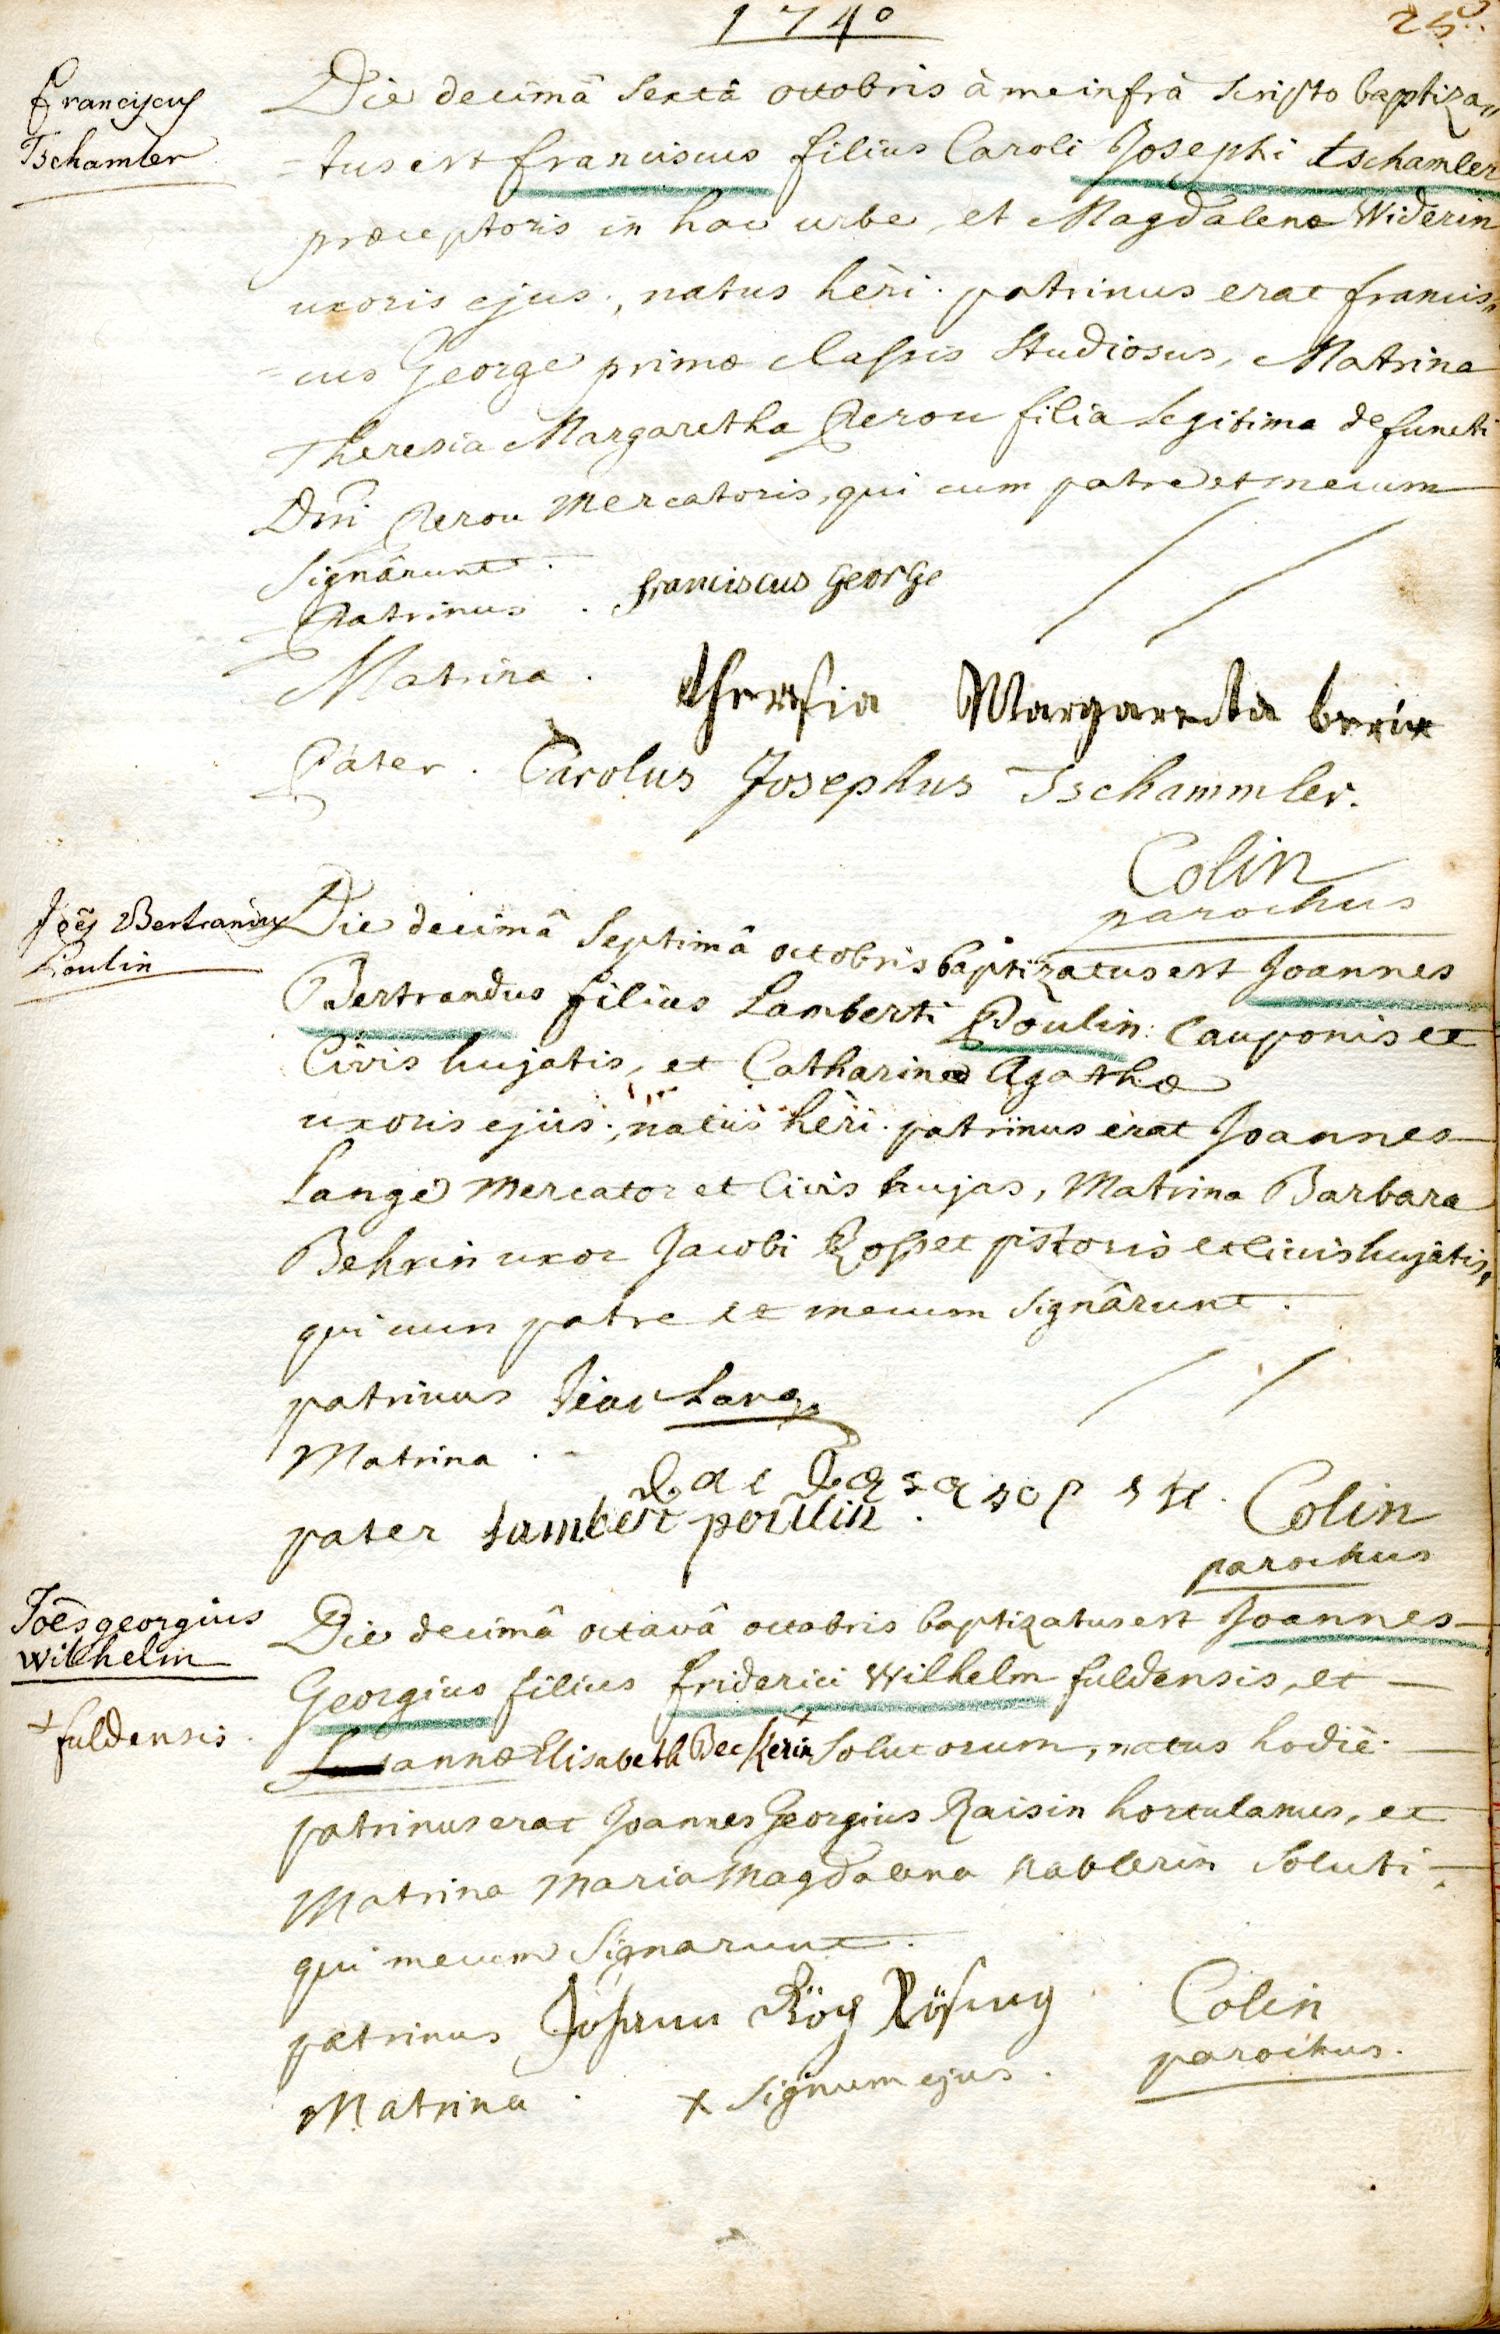 1740
Franciscus
Tschamler
Die decimâ sextâ octobris à me infrà scripto baptiza„
=tus est franciscus filius Caroli Josephi tschamler
præceptoris in hac urbe, et Magdalenæ Widerin
uxoris ejus., natus hèri. patrinus erat francis„
=cus George primæ classis studiosus, Matrina
Theresia Margaretha Perou filia legitima defuncti
Dni Perou mercatoris, qui cum patre et mecum
signârunt.
Patrinus. franciscus George
Matrina. theresia Margaretha
Pater. Carolus Josephus Tschammler.
Colin
parochus
Joes Bertrandus
Poulin
Die decimâ septimâ octobris baptizatus est Joannes
Bertrandus filius Lamberti Poulin cauponis et
Civis hujatis, et Catharinæ Agathæ
uxoris ejus., natus hèri. patrinus erat Joannes
Lange mercator et Civis hujas, Matrina Barbara
Behrin uxor Jacobi Rosset pistoris et civis hujatis,
qui cum patre et mecum signârunt.
patrinus Jean Lang
Matrina.
pater Lambert poulin.
Colin
parochus
Joes georgius
Wilhelm
+ fuldensis.
Die decimâ octavâ octobris baptizatus est Joannes
Georgius filius friderici Wilhelm fuldensis, et
annæ Elisabeth Beckerin solutorum, natus hodiè.
patrinus erat Joannes Georgius Raisin hortulanus, et
Matrina Maria Magdalena Nablerin soluti,
qui mecum signarunt.
patrinus Johann
Colin
parochus.
Matrina. x signum ejus.